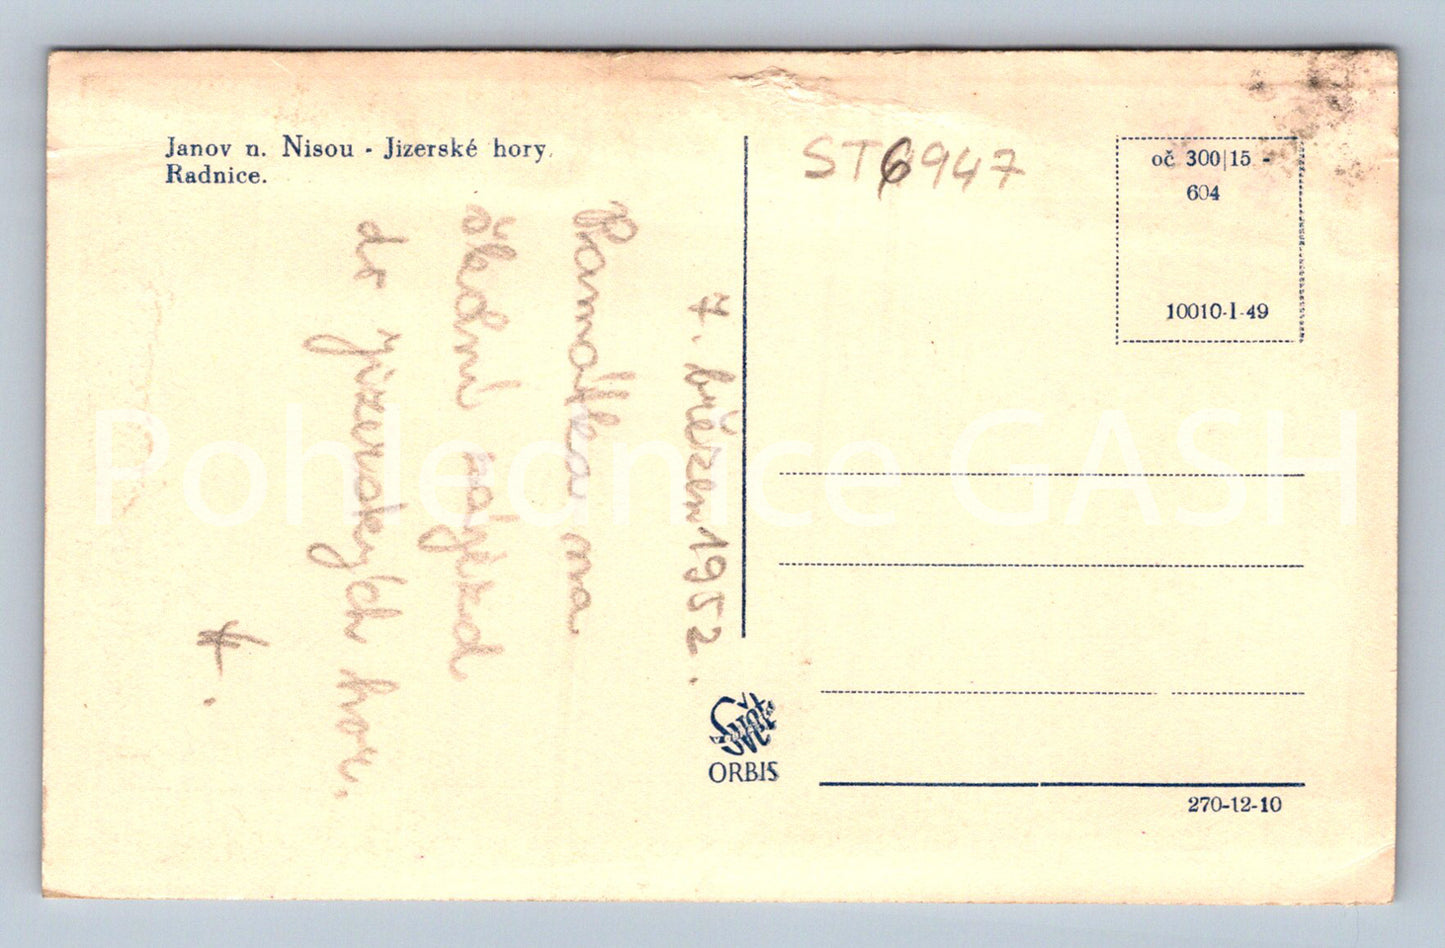 Janov n. Nisou - Jizerské hory.
Radnice.
ST6947
oč 300|15 -
604
10010-I-49
7. březen 1952.
Památka na
školní zájezd
do Jizerských hor.
Pohlednice GASH
ORBIS
270-12-10